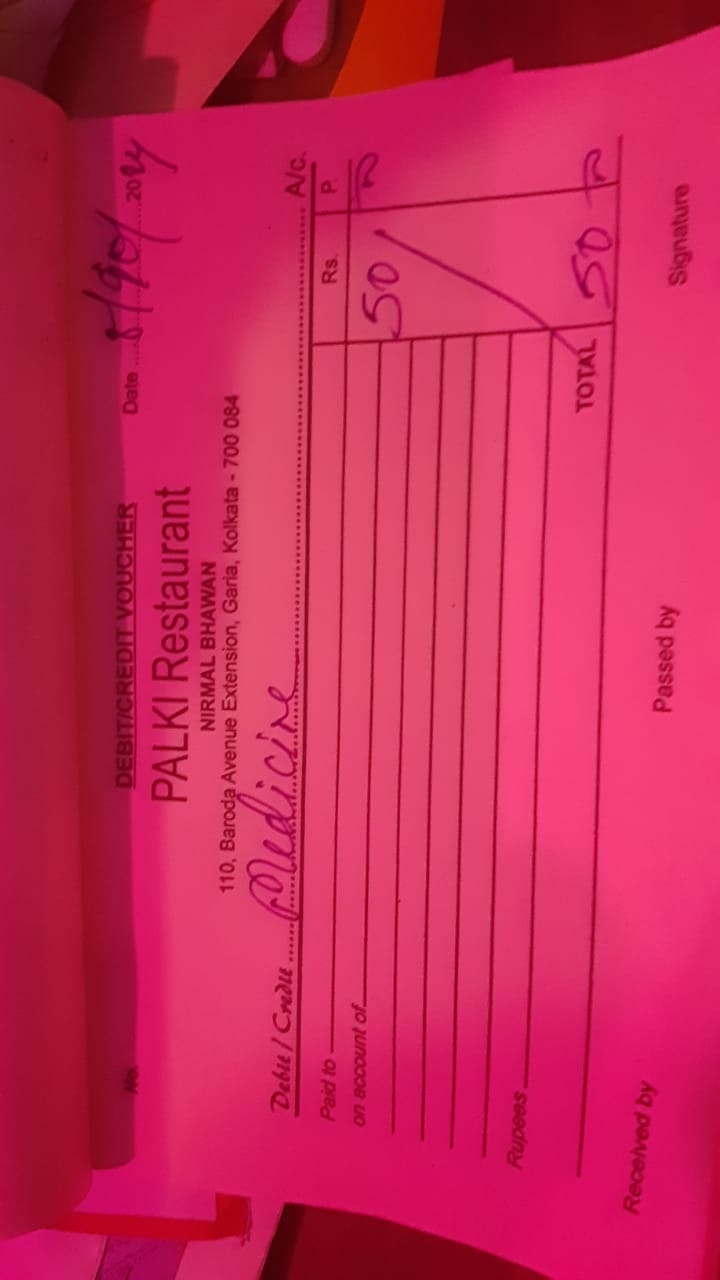 DEBIT/CREDIT VOUCHER
No. Date 2024
PALKI Restaurant
NIRMAL BHAWAN
110, Baroda Avenue Extension, Garia, Kolkata - 700 084
Debit / Credit Medicine A/c.
Paid to Rs. P.
on account of 50
Rupees
TOTAL 50
Received by Passed by Signature